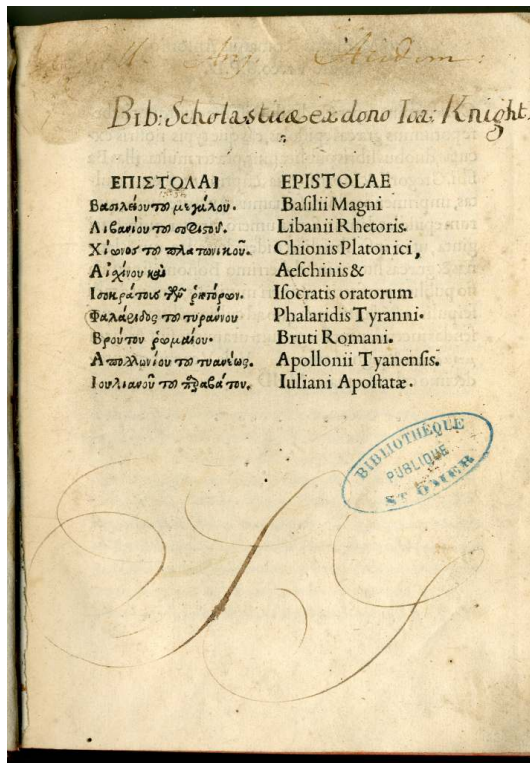 Bib: Scholasticæ ex dono Ioa: Knight.
ΕΠΙΣΤΟΛΑΙ
Βασιλείου τοῦ μεγάλου.
Λιβανίου τοῦ σοφιστοῦ.
Χίωνος τοῦ πλατωνικοῦ.
Αἰσχίνου καὶ
Ισοκράτους τῶν ῥητόρων.
Φαλάριδος τοῦ τυράννου
Βρούτου ῥωμαίου.
Απολλωνίου τοῦ τυανέως.
Ιουλιανοῦ τοῦ παραβάτου.
EPISTOLAE
Basilii Magni
Libanii Rhetoris.
Chionis Platonici,
Aeschinis &
Isocratis oratorum
Phalaridis Tyranni.
Bruti Romani.
Apollonii Tyanensis.
Iuliani Apostatæ.
BIBLIOTHÈQUE
PUBLIQUE
ST OMER